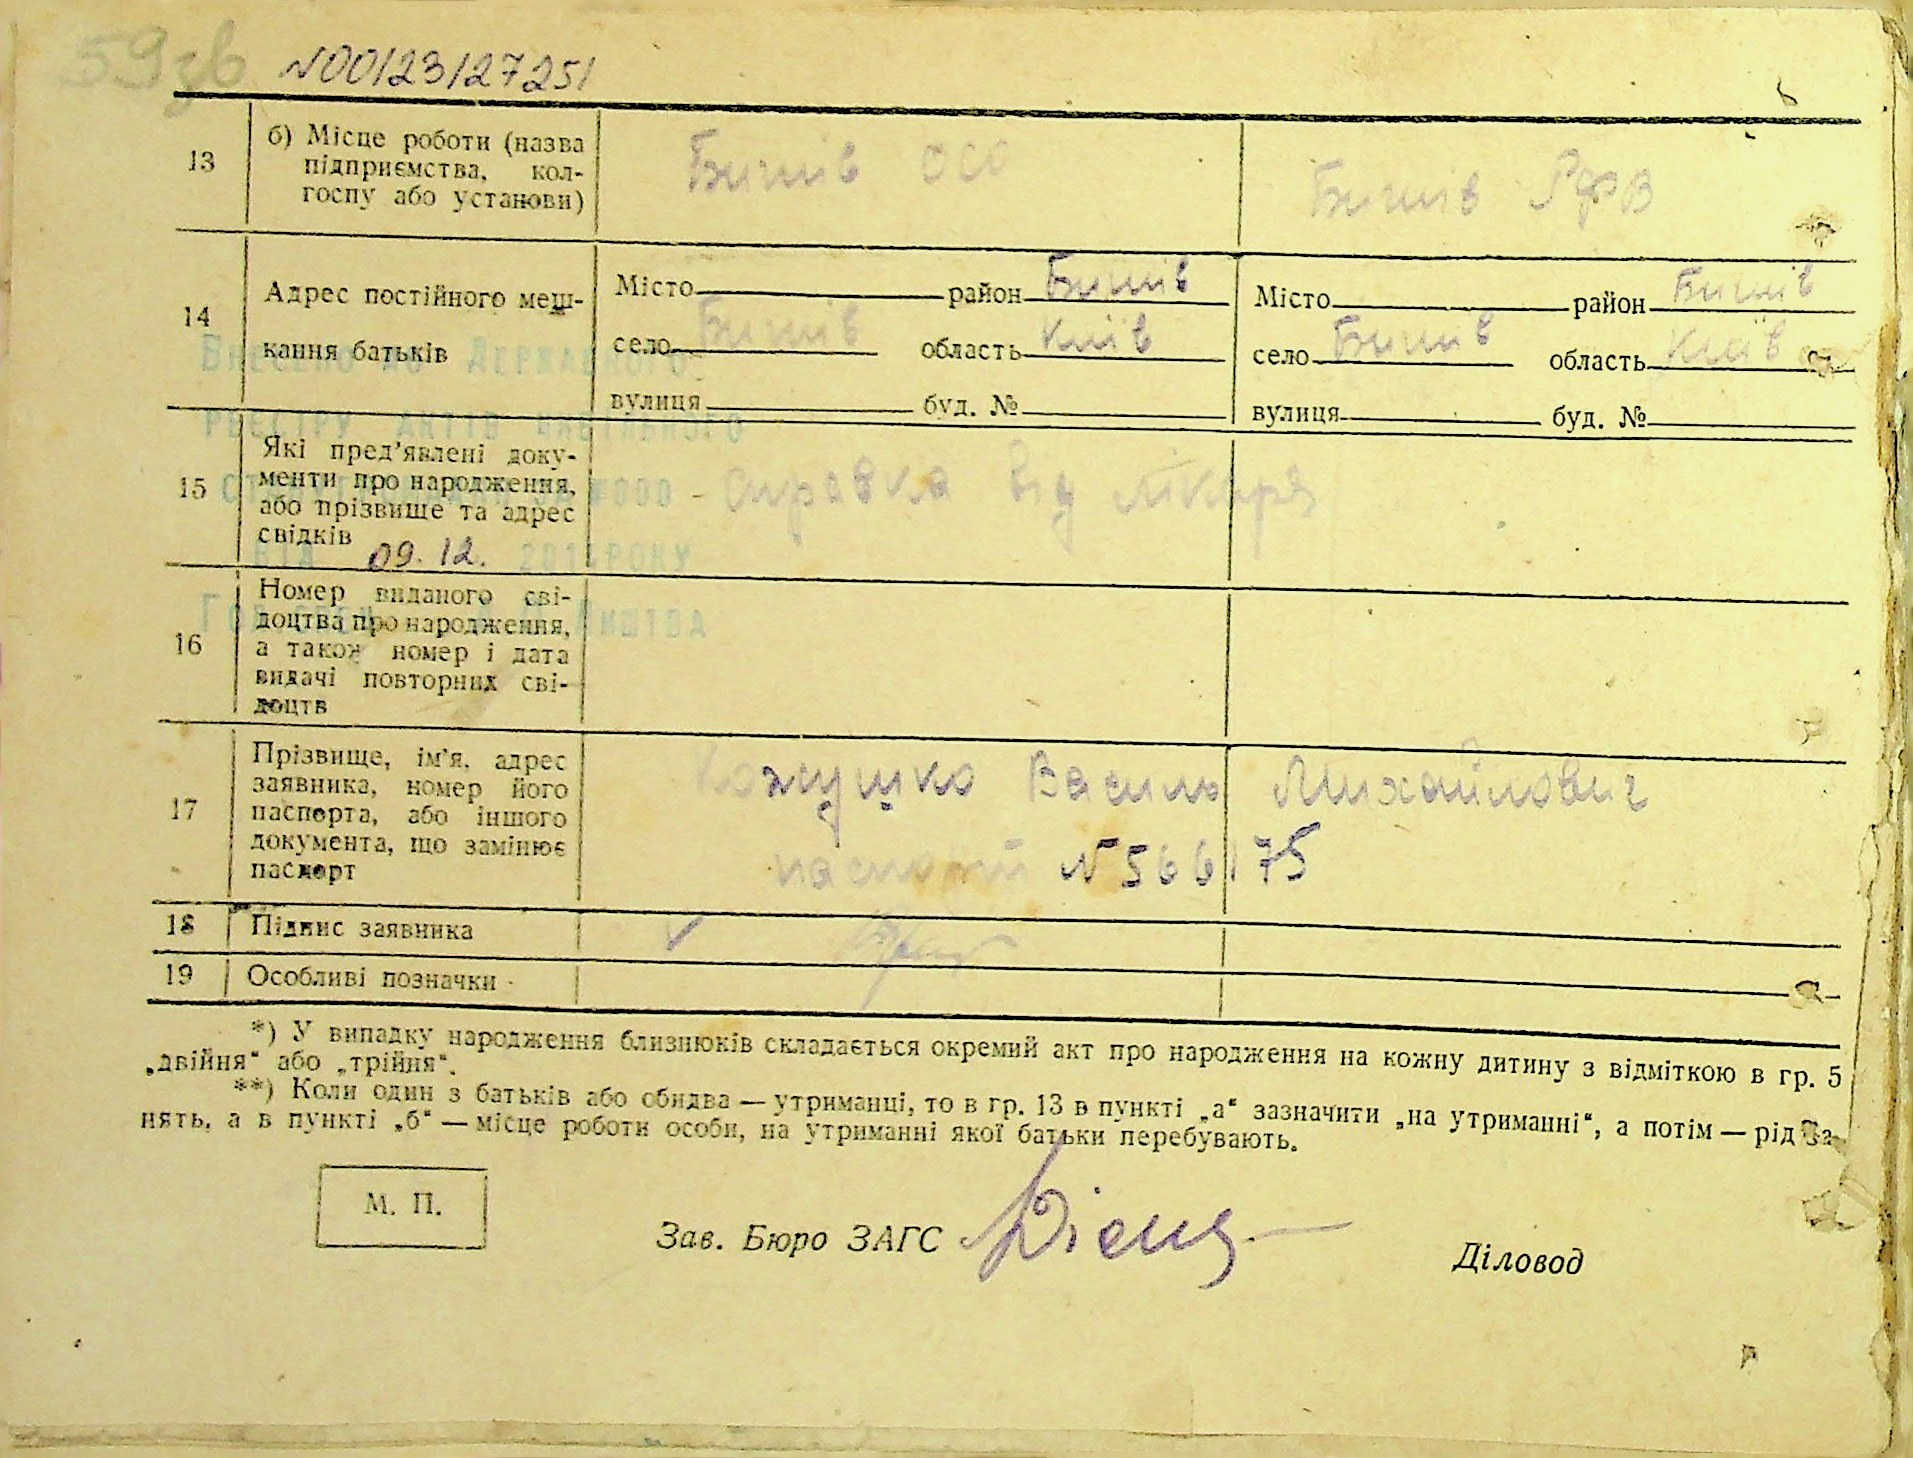 59зв N00123127251
13 б) Місце роботи (назва підприємства, кол-госпу або установи) Бишів ОСО Бишів РФВ
14 Адрес постійного меш-кання батьків
Місто район Бишів Місто район Бишів
село Бишів область Київ село Бишів область Київ
вулиця буд. № вулиця буд. №
Внесено до Державного
реєстру актів цивільного
15 Які пред'явлені доку-
менти про народження,
або прізвище та адрес
свідків
Справка від лікаря
09.12. 201 року
16 Номер виданого сві-
доцтва про народження,
а також номер і дата
видачі повторних сві-
доцтв
17 Прізвище, ім'я, адрес
заявника, номер його
паспорта, або іншого
документа, що замінює
паспорт
Кожушко Василь Михайлович
паспорт N 566175
18 Підпис заявника
19 Особливі позначки
*) У випадку народження близнюків складається окремий акт про народження на кожну дитину з відміткою в гр. 5
„двійня“ або „трійня“.
**) Коли один з батьків або обидва — утриманці, то в гр. 13 в пункті „а“ зазначити „на утриманні“, а потім — рід за-
нять, а в пункті „б“ — місце роботи особи, на утриманні якої батьки перебувають.
М. П.
Зав. Бюро ЗАГС
Діловод